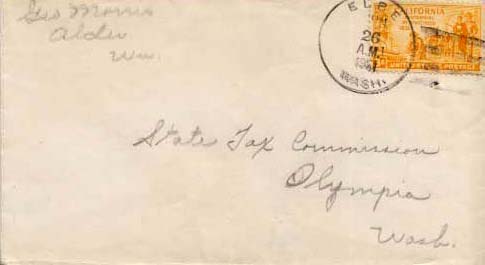 Geo Morris
Alder
Wn.
ELBE
26
A.M.
WASH.
CALIFORNIA
POSTAGE
State Tax Commission
Olympia
Wash.